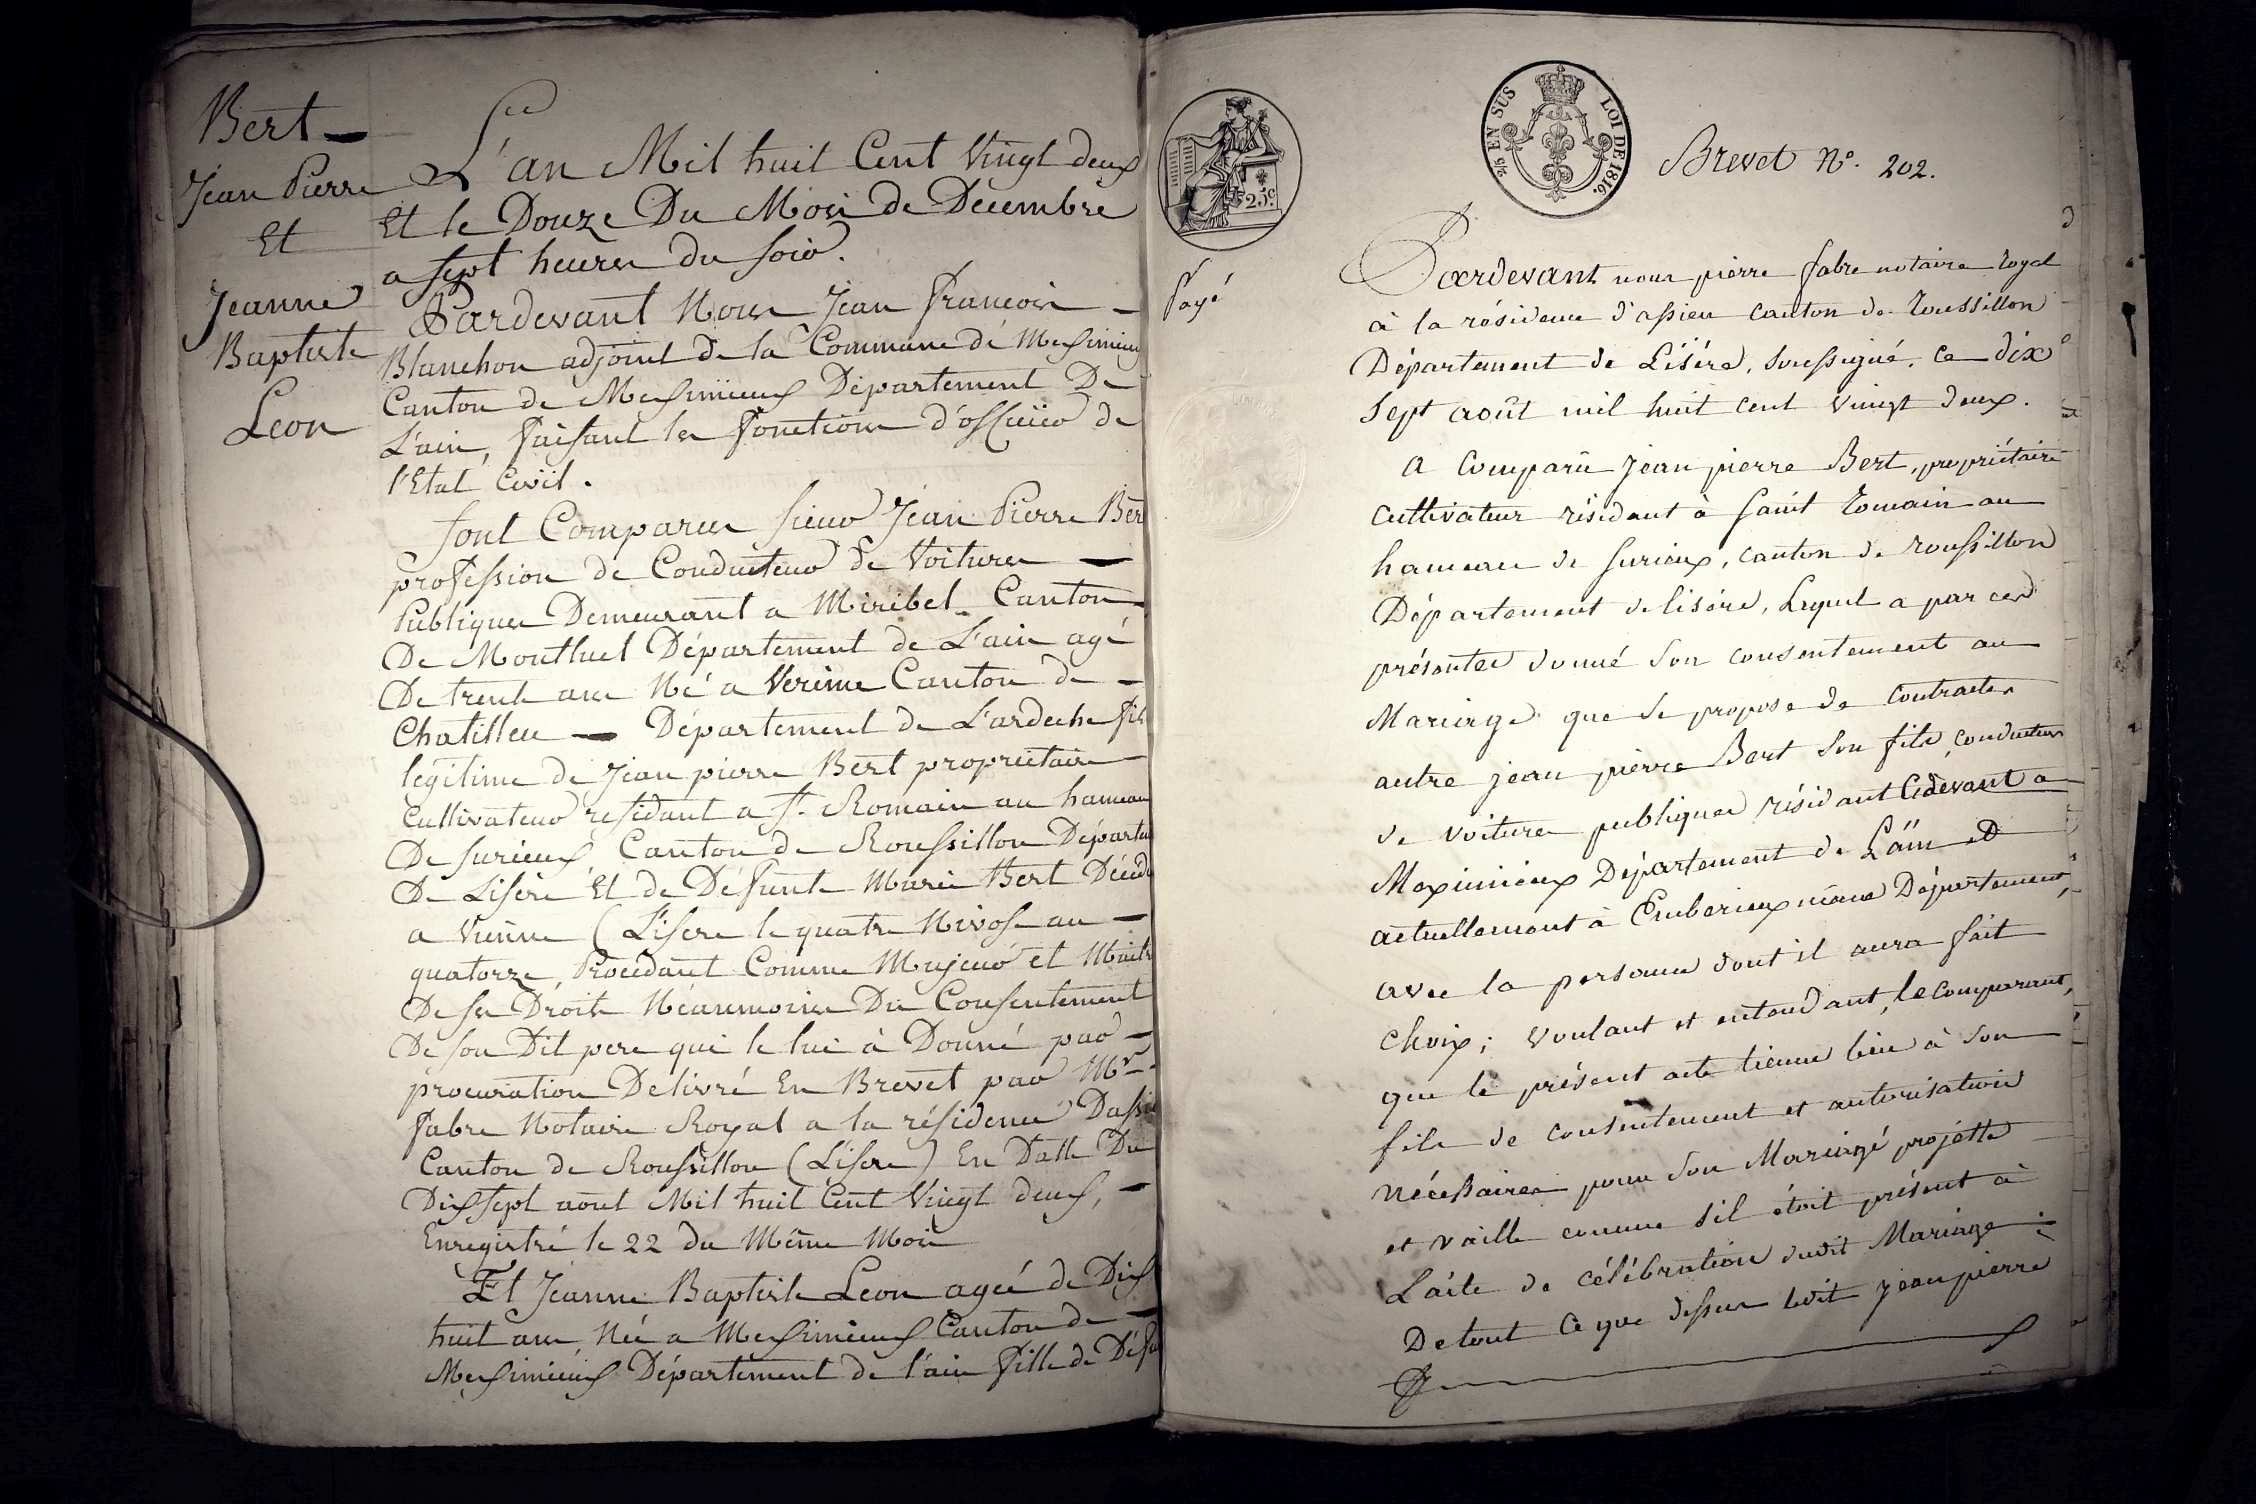 Bert
Jean Pierre
Et
Jeanne
Baptiste
Leon
L'an Mil huit Cent Vingt deux
Et le Douze Du Mois de Decembre
a sept heures du soir.
Pardevant Nous Jean francois
Blanchon adjoint de la Commune de Meximieux
Canton de Meximieux Département De
L'ain, faisant les fonctions d'officier de
l'Etat Civil.
sont Comparus sieur Jean Pierre Ber
profession de Conducteur de Voitures
Publiques Demeurant a Miribel Canton
De Montluel Département de L'ain agé
De trente ans Né a Canton de
Département de L'ardeche fils
legitime de Jean pierre Bert proprietaire
Cultivateur residant a St. Romain au hameau
De surieux, Canton de Roussillon Départe
De Lisere Et de Défunte Marie Bert Décéd
a Vienne (L'isere le quatre Nivose an
quatorze, Procedant Comme Majeur et Maitre
De ses Droits Néanmoins Du Consentement
De son Dit pere qui le lui à Donné par
procuration Delivré En Brevet par Mr.
fabre Notaire Royal a la résidence Dassie
Canton de Roussillon (L'isere) En Datte Du
Dix sept aout Mil huit Cent Vingt deux,
Enregistré le 22 du Même Mois
Et Jeanne Baptiste Leon agée de Dix
huit ans Née a Meximieux Canton de
Meximieux Département de l'ain fille de Défu
25c.
Payé
2/5 EN SUS LOI DE 1816.
Brevet No. 202.
Pardevant nous pierre fabre notaire royal
à la résidence d'assieu canton de roussillon
Département de L'isére, soussigné, ce dix
sept août mil huit cent vingt deux.
a comparu jean pierre Bert, propriétaire
cultivateur résidant à saint romain au
hameau de surieux, canton de roussillon
Département de lisére, Lequel a par ces
présentes donné son consentement au
Mariage que se propose de contracter
autre jean pierre Bert son fils conducteur
de voitures publiques résidant Cidevant a
Meximieux Département de L'ain et
actuellement à Emberieux même Département,
avec la personne dont il aura fait
choix; voulant et entendant, le comparant,
que le présent acte tienne lieu à son
fils de consentement et autorisation
nécessaires pour son Mariage projetté
et vaille comme s'il étoit présent à
L'acte de célébration dudit Mariage;
De tout ce que dessus ledit jean pierre